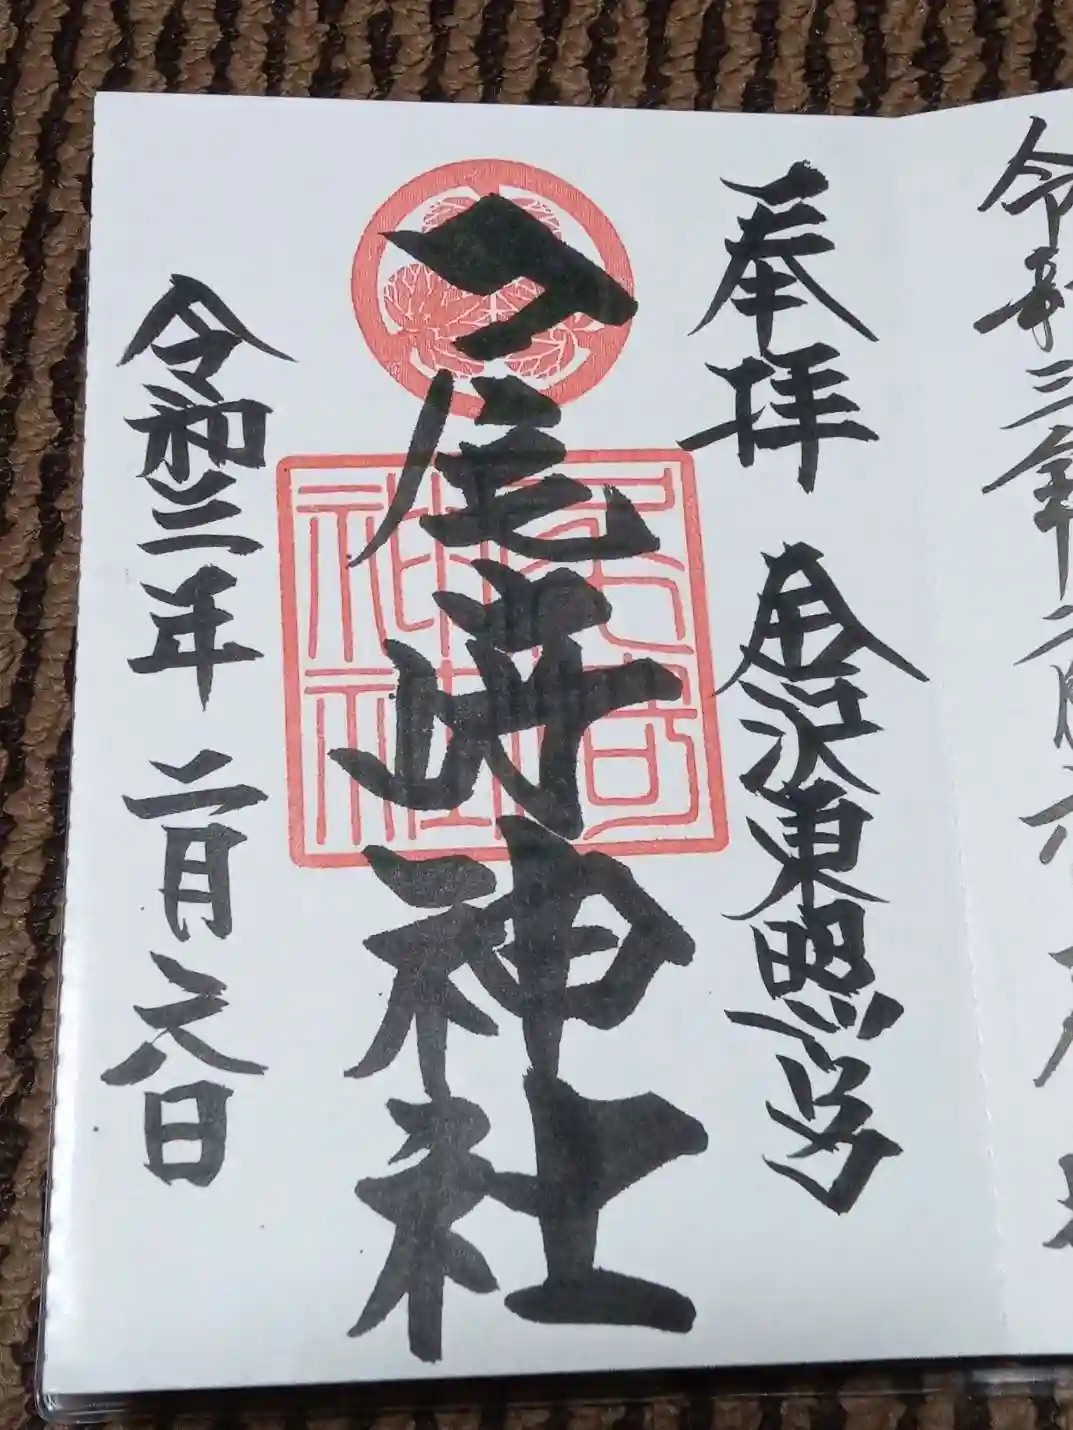 令和三年二月六
奉拝 金沢東照宮
尾崎神社
令和三年 二月六日